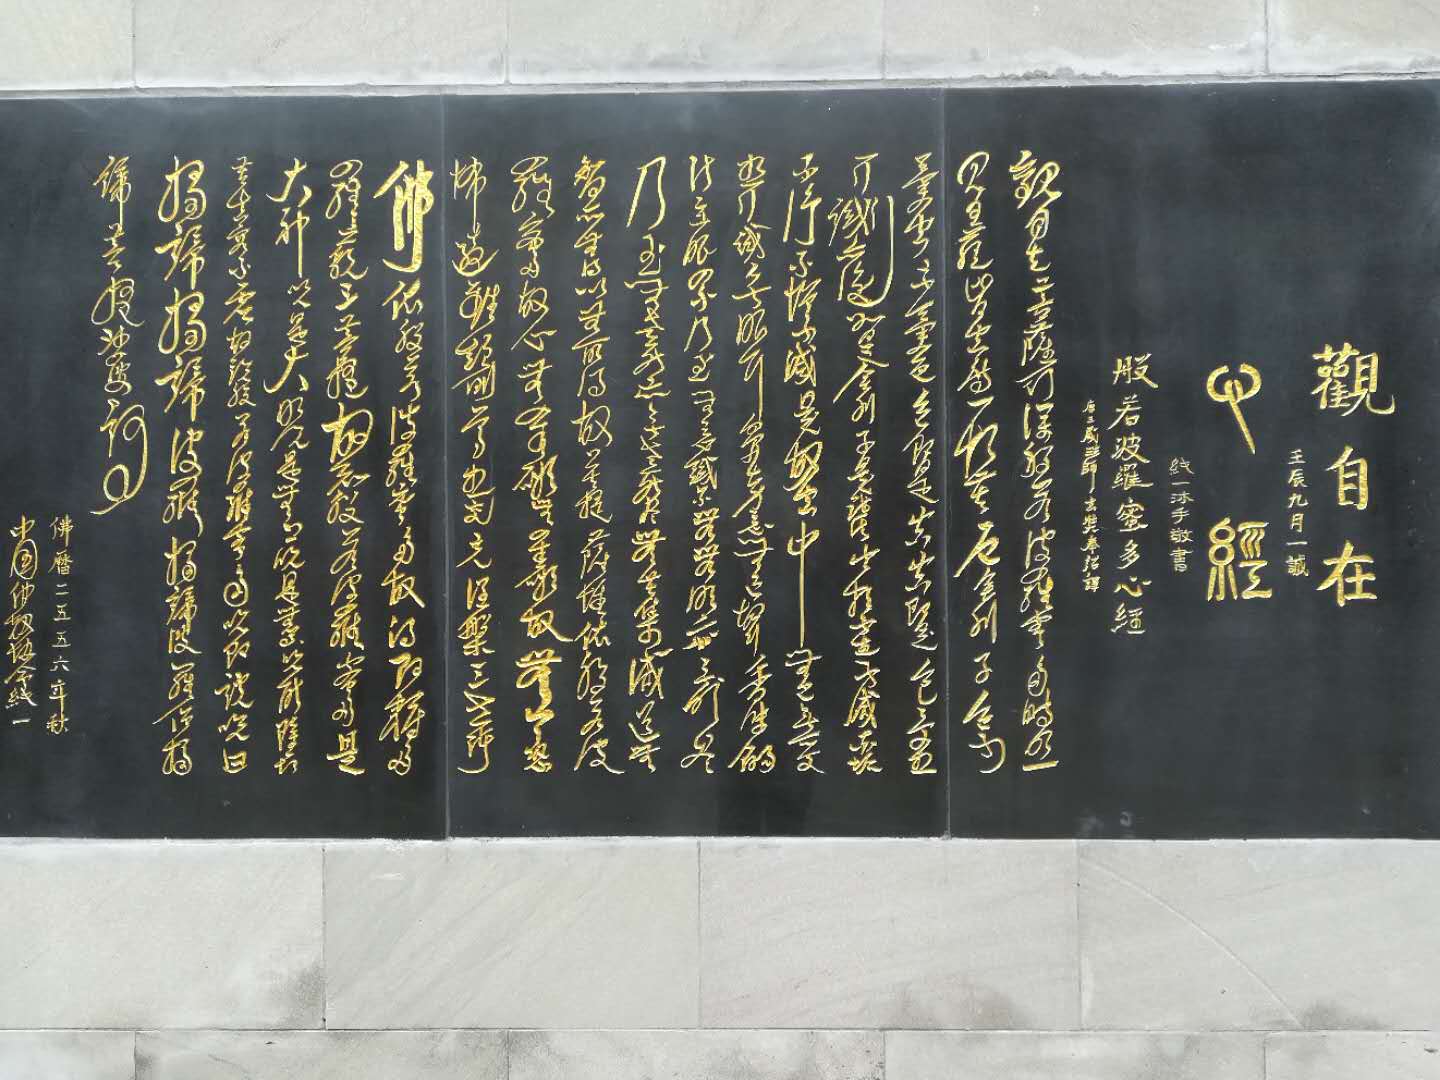 觀自在
壬辰九月一誠
心經
纹一沐手敬書
般若波羅蜜多心經
唐三藏法師玄奘奉詔譯
觀自在菩薩行深般若波羅蜜多時照
見五蘊皆空度一切苦厄舍利子色不
異空空不異色色即是空空即是色受想
行識亦復如是舍利子是諸法空相不生不滅不垢
不淨不增不減是故空中無色無受
想行識無眼耳鼻舌身意無色聲香味觸
法無眼界乃至無意識界無無明亦無無明盡
乃至無老死亦無老死盡無苦集滅道無
智亦無得以無所得故菩提薩埵依般若波
羅蜜多故心無罣礙無罣礙故無有恐
怖遠離顛倒夢想究竟涅槃三世諸
佛依般若波羅蜜多故得阿耨多
羅三藐三菩提故知般若波羅蜜多是
大神咒是大明咒是無上咒是無等等咒能除一切
苦真實不虛故說般若波羅蜜多咒即說咒曰
揭諦揭諦波羅揭諦波羅僧揭
諦菩提娑婆訶
佛曆二五五六年秋